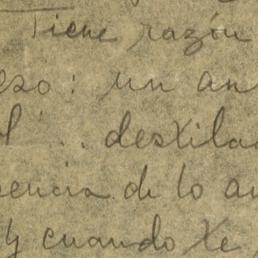 Tiene razón
eso: un an
l... destila
encia de lo a
y cuando te